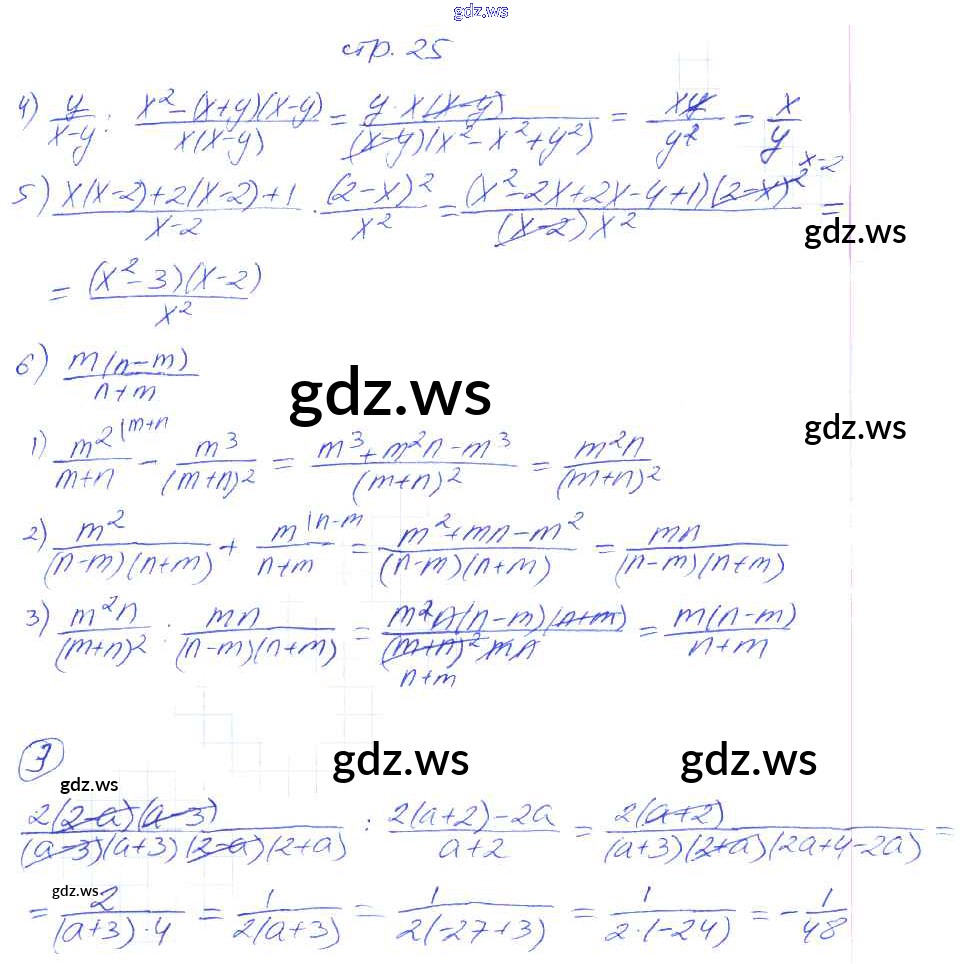 gdz.ws
стр. 25
4) y/(x-y) : (x² - (x+y)(x-y))/(x(x-y)) = (y · x(x-y))/((x-y)(x² - x² + y²)) = xy/y² = x/y
5) (x(x-2)+2(x-2)+1)/(x-2) · (2-x)²/x² = ((x²-2x+2x-4+1)(2-x)²)/((x-2)x²) = x-2
gdz.ws
= ((x²-3)(x-2))/x²
6) (m(n-m))/(n+m)
gdz.ws
gdz.ws
1) m²/(m+n) (m+n - m³/(m+n)² = (m³+m²n-m³)/(m+n)² = m²n/(m+n)²
2) m²/((n-m)(n+m)) + m/(n+m) (n-m = (m²+mn-m²)/((n-m)(n+m)) = mn/((n-m)(n+m))
3) m²n/(m+n)² : mn/((n-m)(n+m)) = (m²n(n-m)(n+m))/((m+n)² mn) = (m(n-m))/(n+m)
n+m
3
gdz.ws gdz.ws gdz.ws
(2(2-a)(a-3))/((a-3)(a+3)(2-a)(2+a)) : (2(a+2)-2a)/(a+2) = (2(a+2))/((a+3)(2+a)(2a+4-2a)) =
gdz.ws
= 2/((a+3)·4) = 1/(2(a+3)) = 1/(2(-27+3)) = 1/(2·(-24)) = -1/48